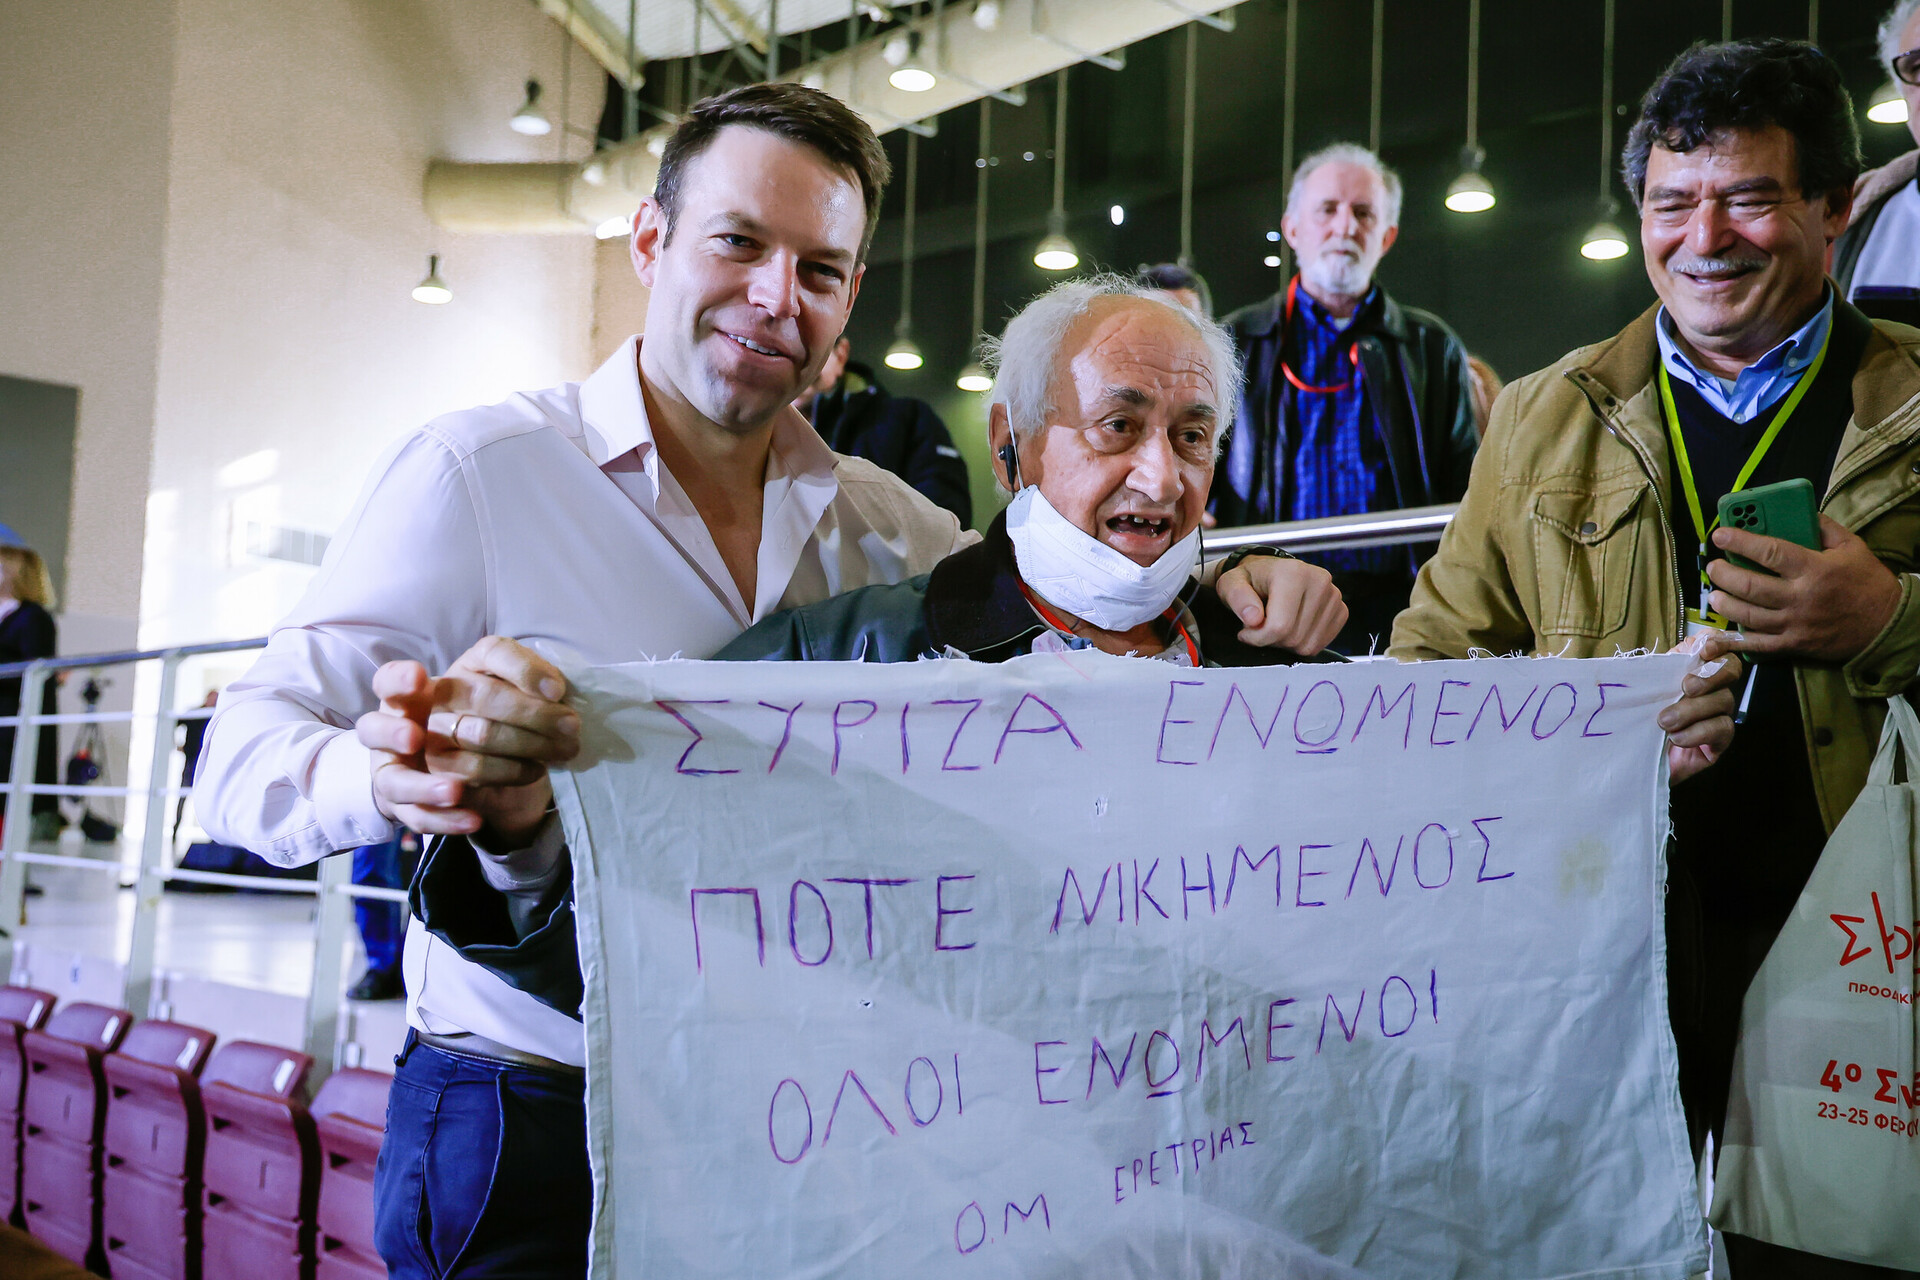 ΣΥΡΙΖΑ ΕΝΩΜΕΝΟΣ
ΠΟΤΕ ΝΙΚΗΜΕΝΟΣ
ΟΛΟΙ ΕΝΩΜΕΝΟΙ
Ο.Μ ΕΡΕΤΡΙΑΣ
4º
23-25